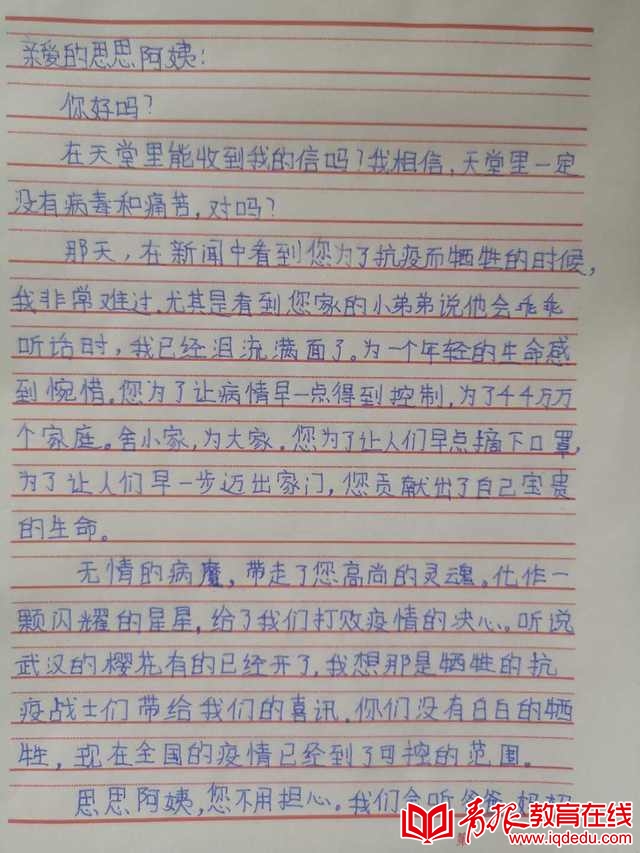 亲爱的思思阿姨:
你好吗?
在天堂里能收到我的信吗?我相信,天堂里一定
没有病毒和痛苦,对吗?
那天,在新闻中看到您为了抗疫而牺牲的时候,
我非常难过.尤其是看到您家的小弟弟说他会乖乖
听话时,我已经泪流满面了。为一个年轻的生命感
到惋惜。您为了让病情早一点得到控制,为了千千万万
个家庭。舍小家,为大家.您为了让人们早点摘下口罩,
为了让人们早一步迈出家门,您贡献出了自己宝贵
的生命。
无情的病魔,带走了您高尚的灵魂。化作一
颗闪耀的星星,给了我们打败疫情的决心。听说
武汉的樱花有的已经开了,我想那是牺牲的抗
疫战士们带给我们的喜讯.你们没有白白的牺
牲,现在全国的疫情已经到了可控的范围。
思思阿姨,您不用担心。我们会听爸爸妈妈
青报教育在线
www.iqdedu.com